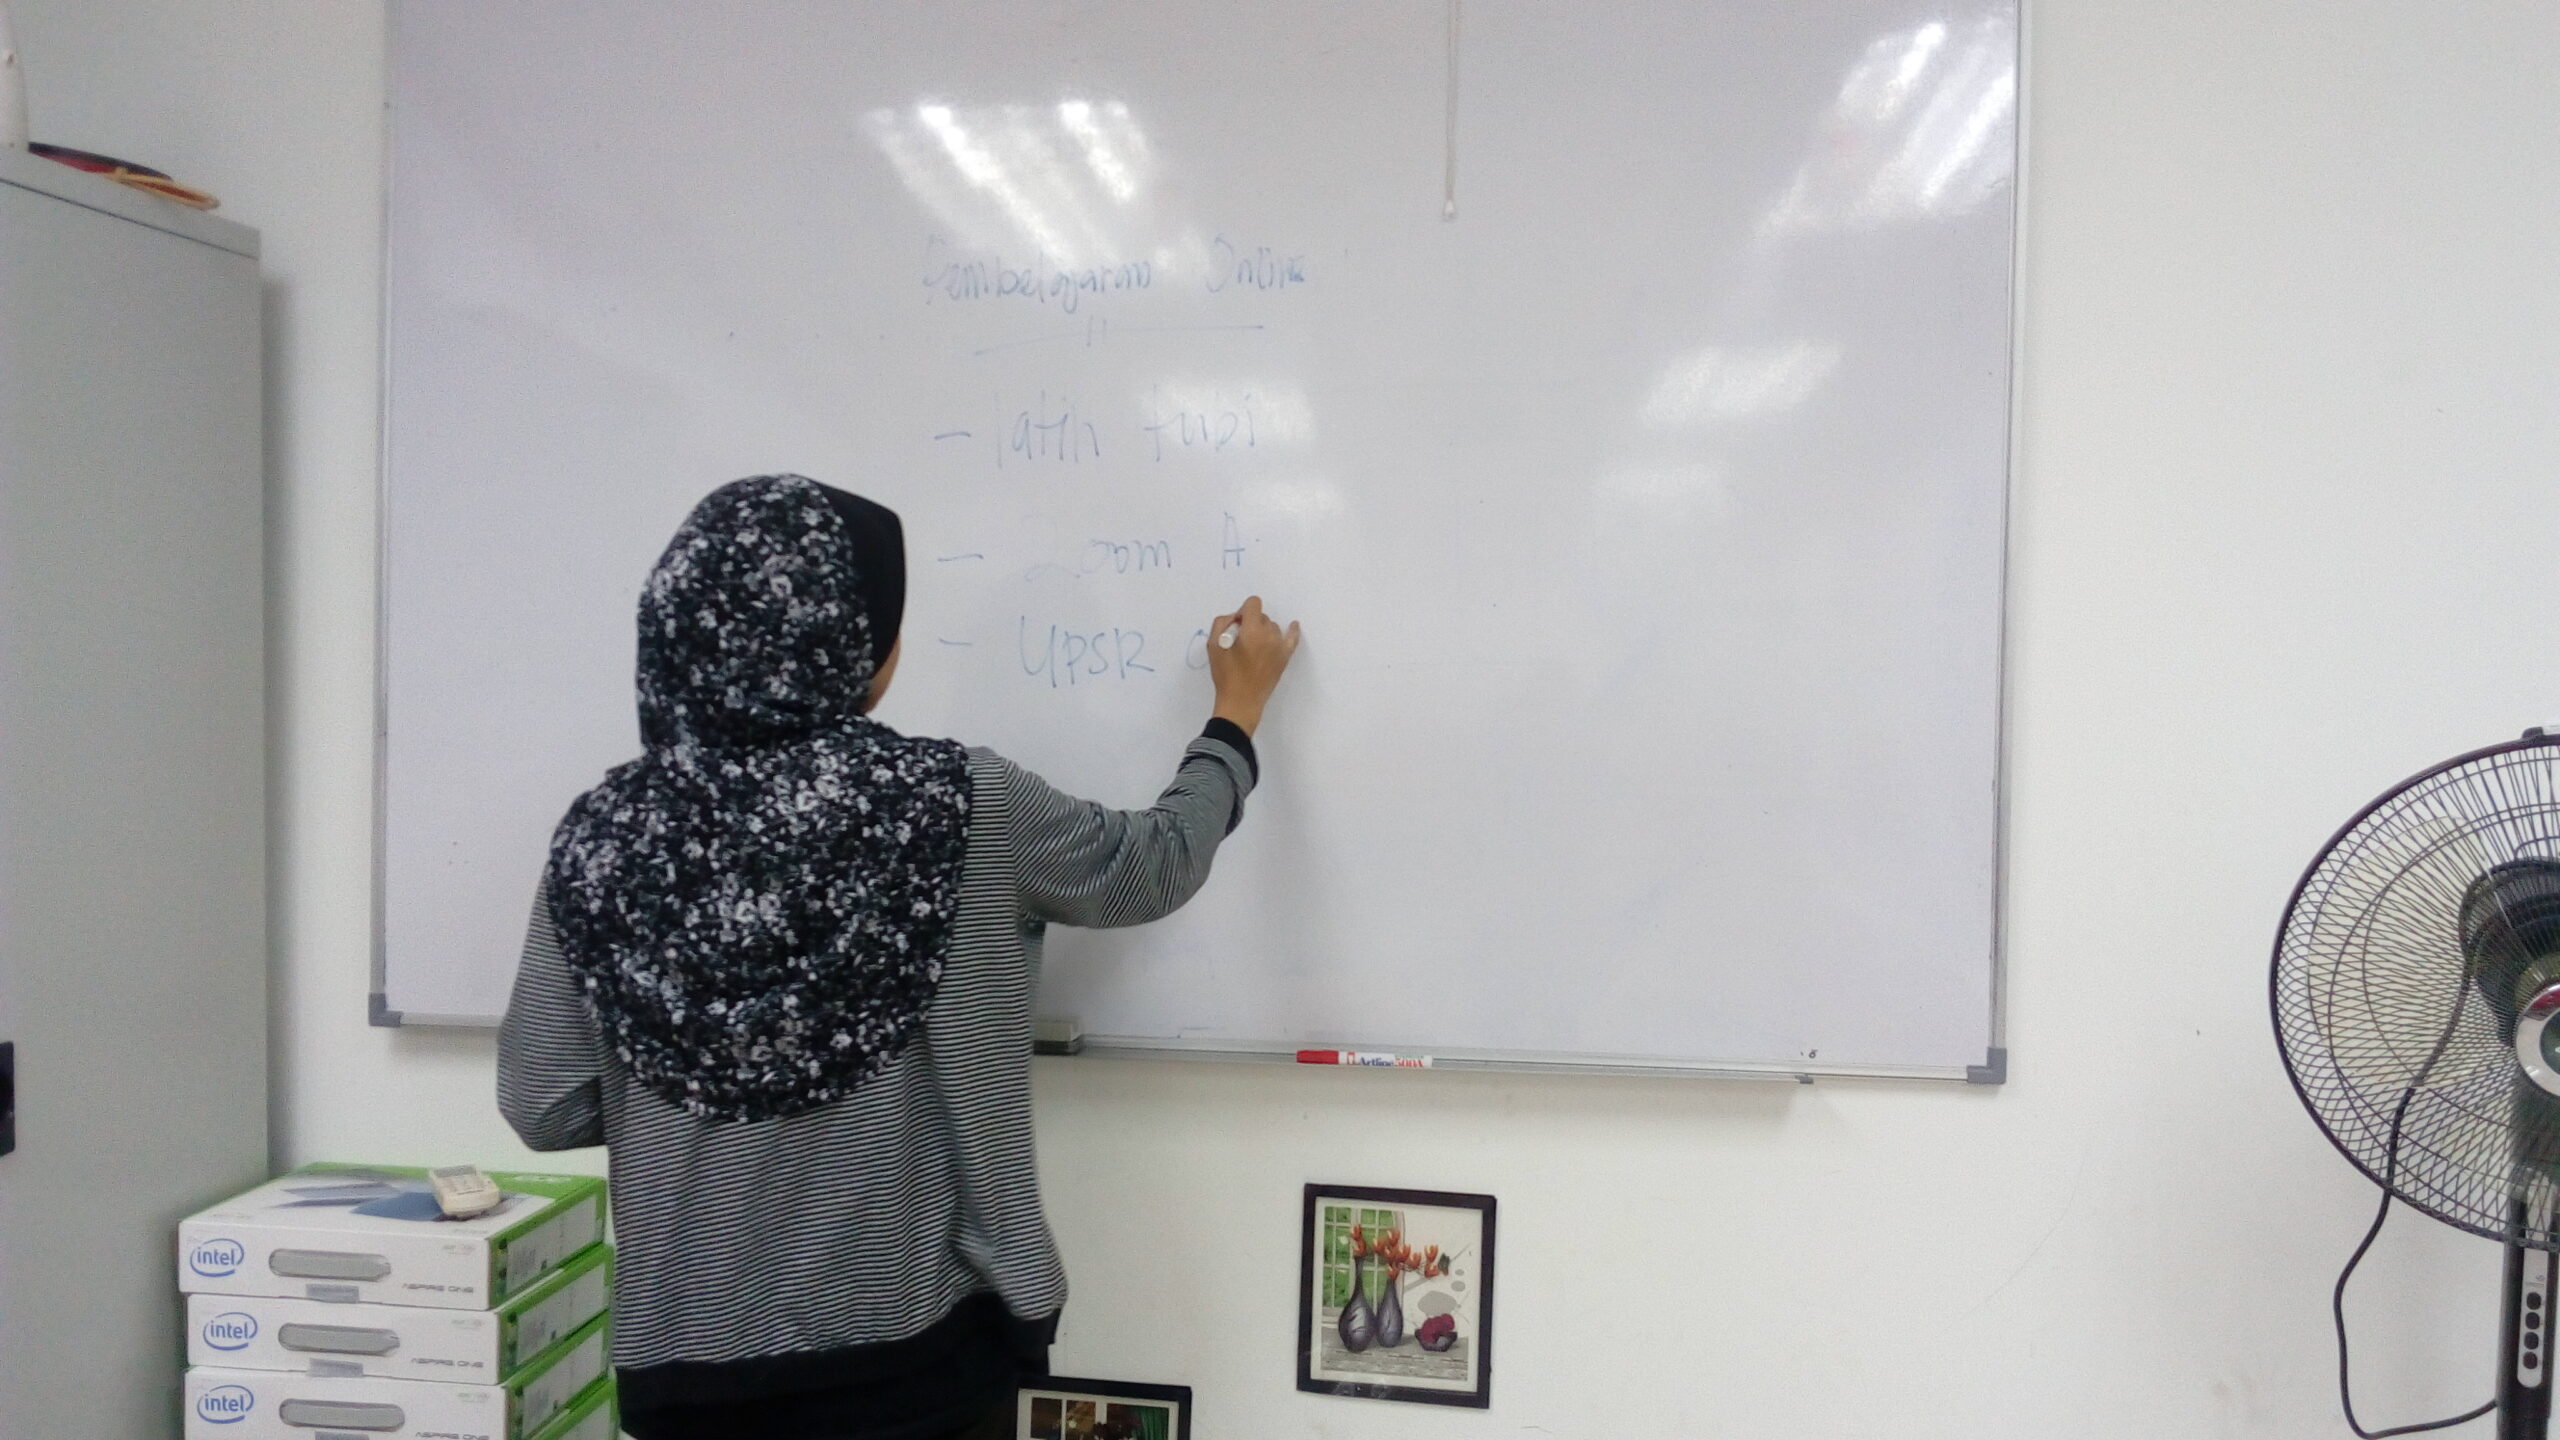 Pembelajaran Online
- latih tubi
- Zoom A
- UPSR
Artline 500A
intel
ASPIRE ONE
intel
ASPIRE ONE
intel
ASPIRE ONE